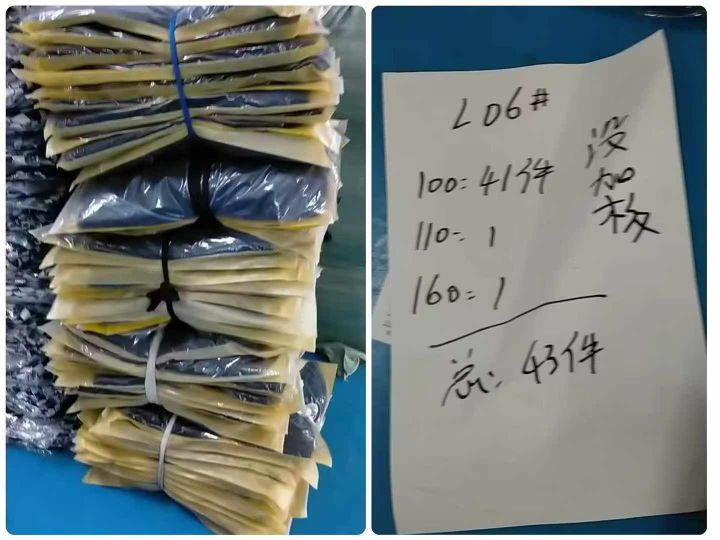 L06#
100=41件
110-1
160=1
总:43件
没加板